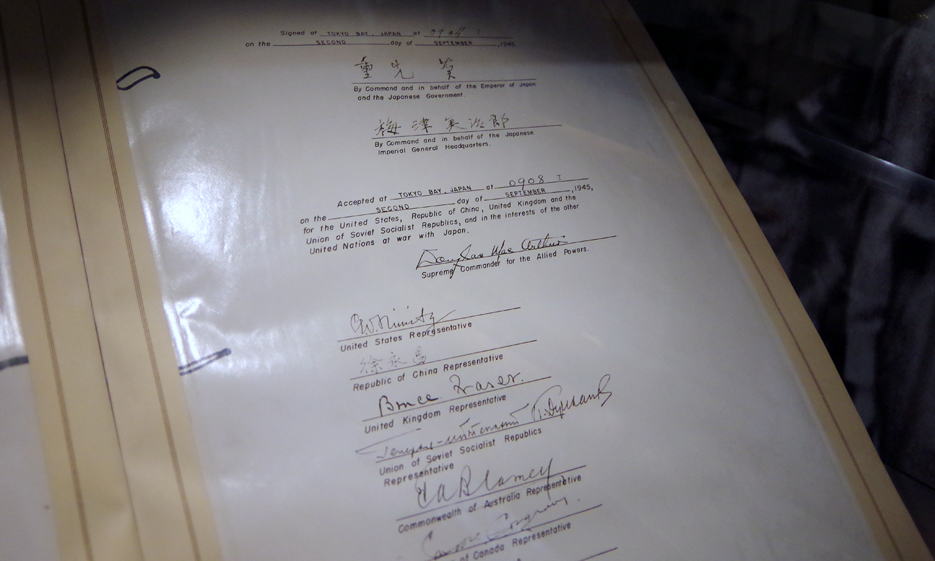 Signed at TOKYO BAY, JAPAN at 0904 I
on the SECOND day of SEPTEMBER, 1945.
重光 葵
By Command and in behalf of the Emperor of Japan
and the Japanese Government.
梅津美治郎
By Command and in behalf of the Japanese
Imperial General Headquarters.
Accepted at TOKYO BAY, JAPAN at 0908 I
on the SECOND day of SEPTEMBER, 1945,
for the United States, Republic of China, United Kingdom and the
Union of Soviet Socialist Republics, and in the interests of the other
United Nations at war with Japan.
Douglas MacArthur
Supreme Commander for the Allied Powers.
C.W. Nimitz
United States Representative
徐永昌
Republic of China Representative
Bruce Fraser.
United Kingdom Representative
Union of Soviet Socialist Republics
Representative
T.A. Blamey
Commonwealth of Australia Representative
of Canada Representative